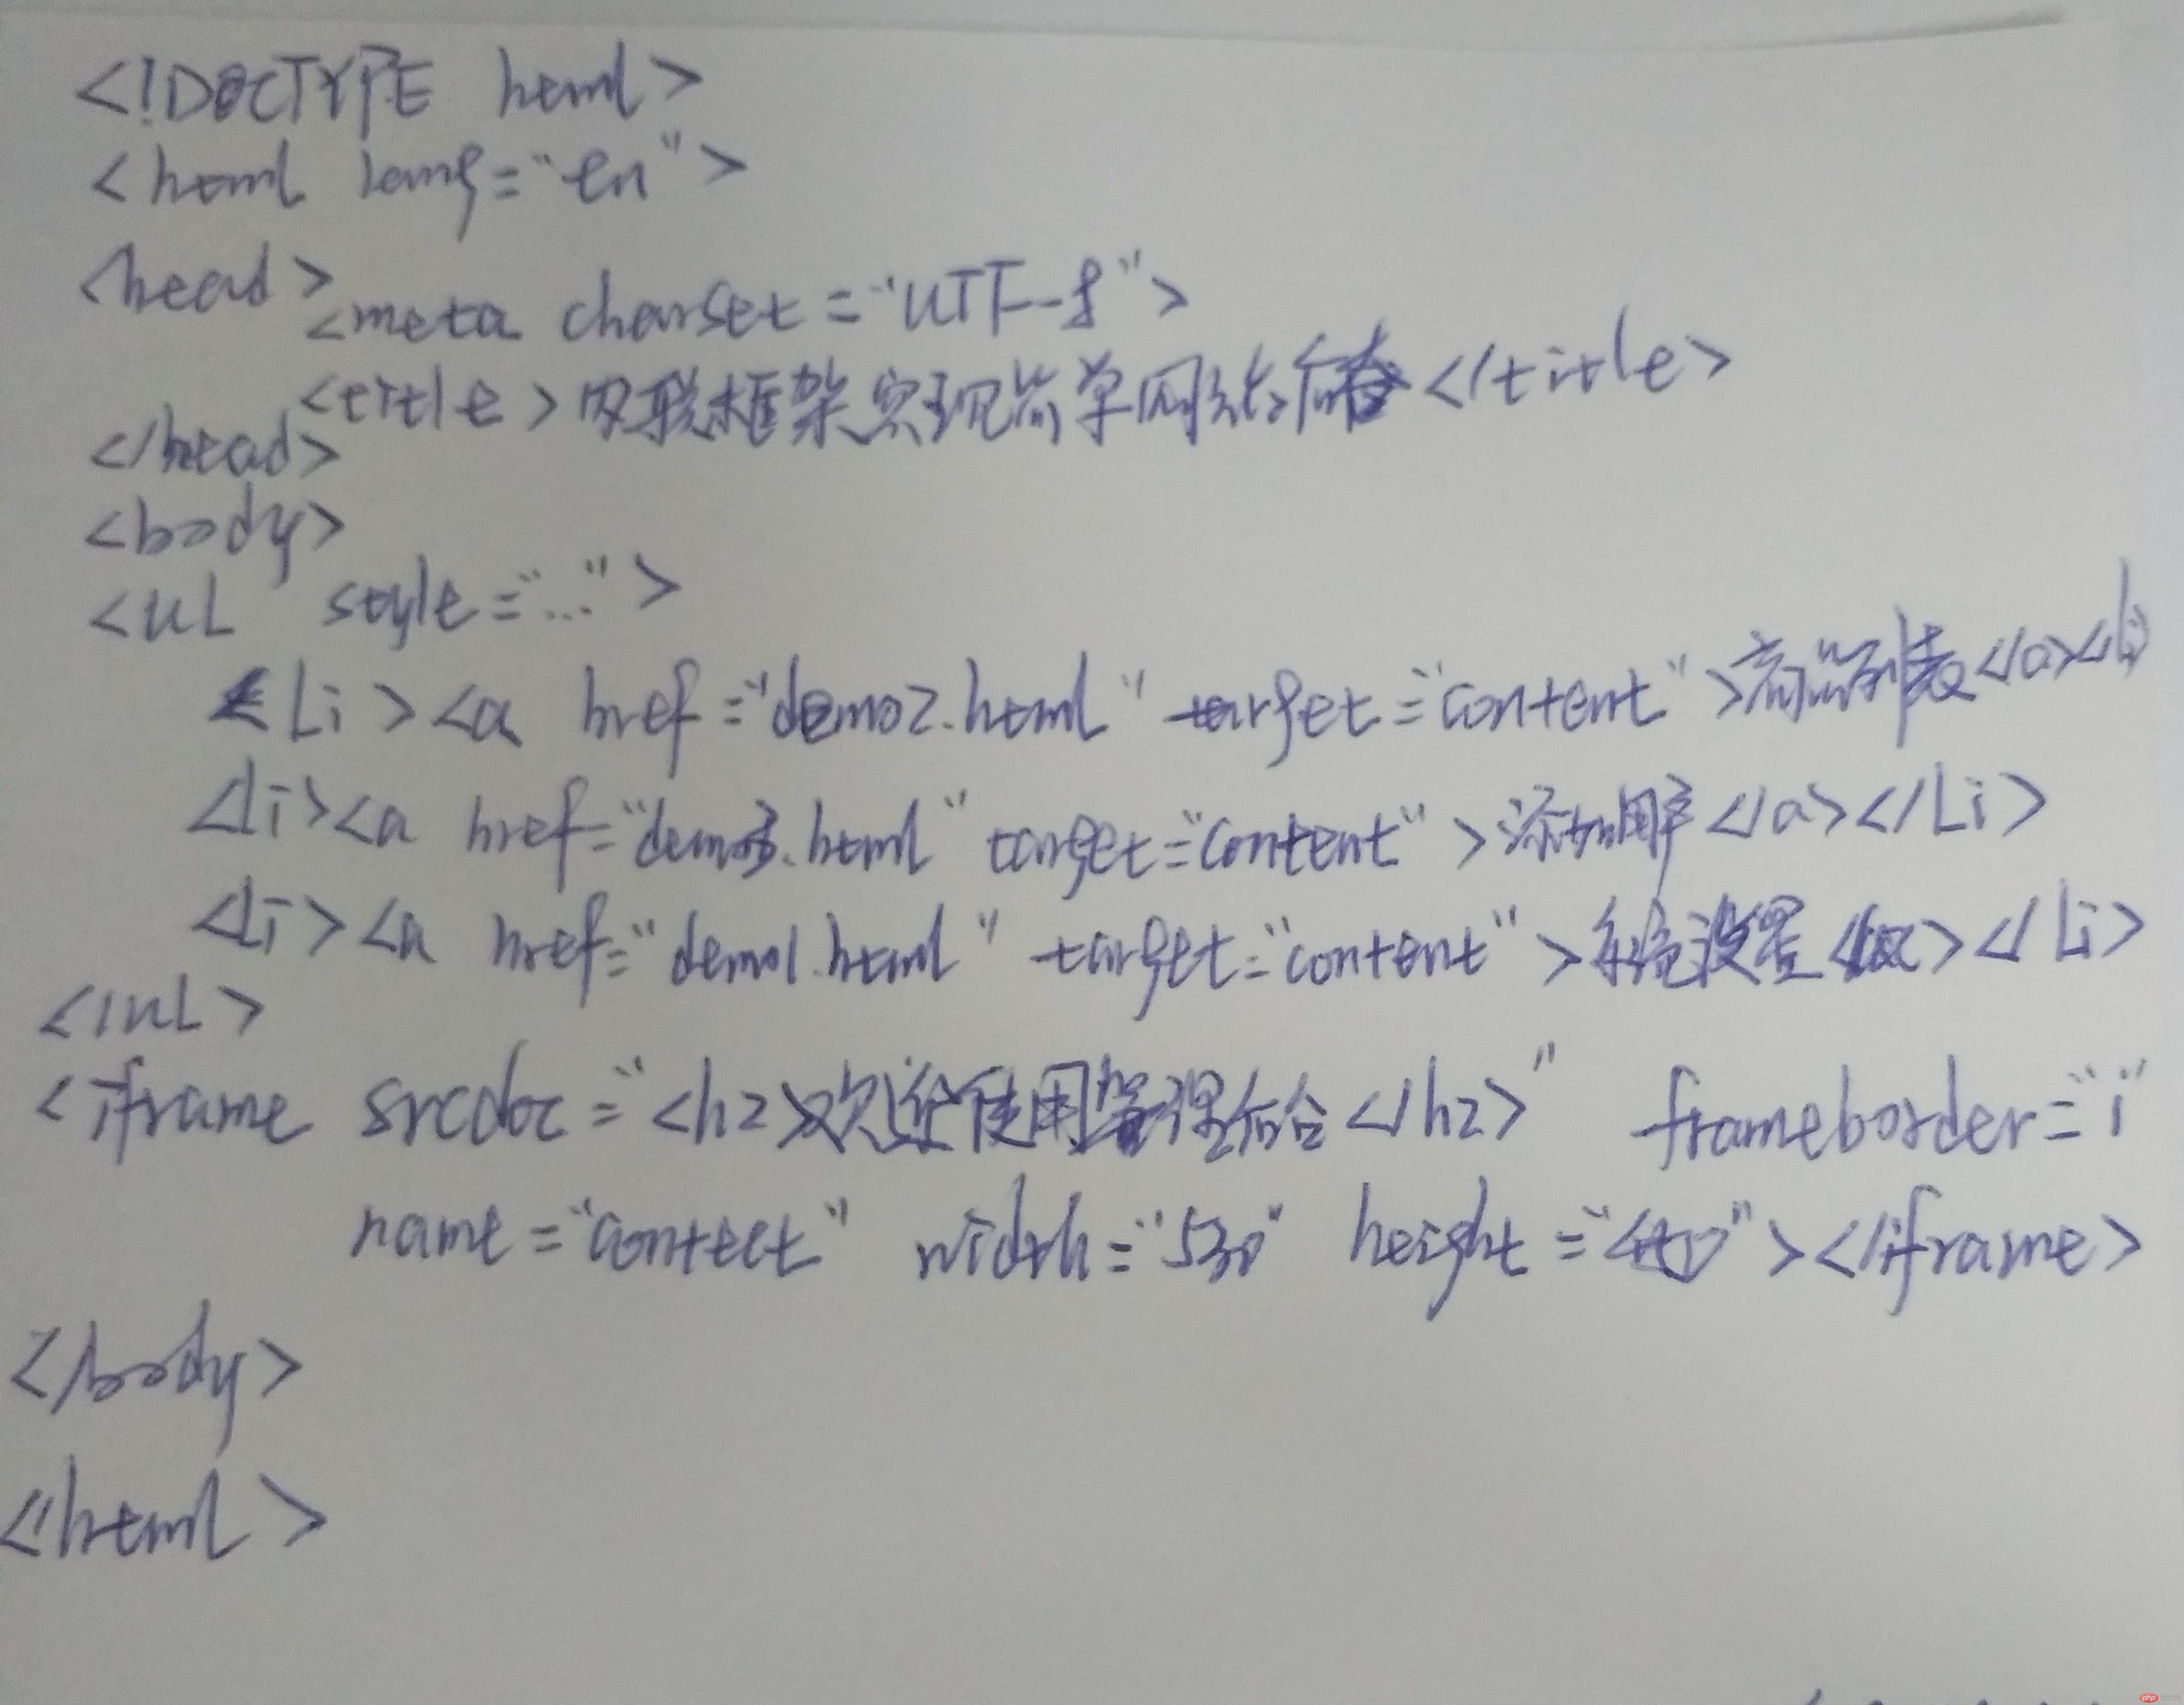 <!DOCTYPE html>
<html lang="en">
<head>
<meta charset="UTF-8">
<title>内联框架实现简单网站后台</title>
</head>
<body>
<ul style="...">
<Li><a href="demo2.html" target="content">商品列表</a></li>
<li><a href="demo3.html" target="content">添加用户</a></Li>
<Li><a href="demo1.html" target="content">系统设置</a></Li>
</uL>
<iframe srcdoc="<h2>欢迎使用管理后台</h2>" frameborder="1"
name="content" width="530" height=""></iframe>
</body>
</html>
php